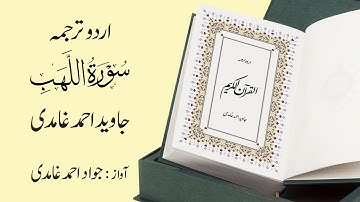 اردو ترجمہ
سُوْرَۃُ اللَّهَبِ
جاوید احمد غامدی
آواز : جواد احمد غامدی
اردو ترجمہ
القرآن الکریم
جاوید احمد غامدی